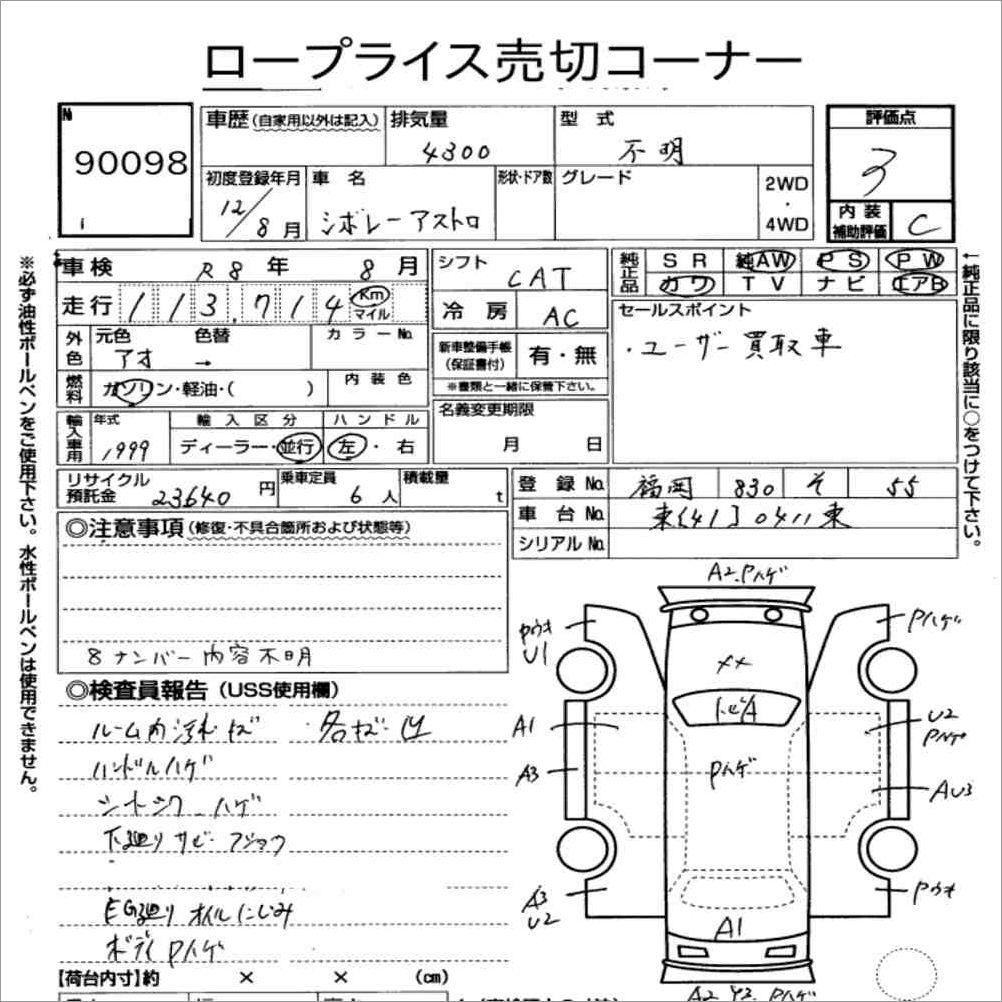 ロープライス売切コーナー
№
90098
車歴 (自家用以外は記入) 排気量 型 式 評価点
4300 不明 3
初度登録年月 車 名 形状・ドア数 グレード 2WD・4WD 内装補助評価 C
12/8月 シボレーアストロ
車検 R8年 8月 シフト CAT 純正品 SR 純AW PS PW
走行 113,714 Km マイル 冷房 AC カワ TV ナビ エアB
外色 元色 色替 カラーNo. 新車整備手帳(保証書付) 有・無 セールスポイント
アオ → ※書類と一緒に保管下さい。 ・ユーザー買取車
燃料 ガソリン・軽油・( ) 内装色 名義変更期限
輸入車用 年式 輸入区分 ハンドル 月 日
1999 ディーラー・並行 左・右
リサイクル預託金 23640円 乗車定員 6人 積載量 t 登録No. 福岡 830 そ 55
車台No. 東[41]0411東
シリアルNo.
◎注意事項(修復・不具合箇所および状態等)
8ナンバー内容不明
◎検査員報告(USS使用欄)
ハンドルハゲ
下廻りサビ
EG廻りオイルにじみ
ボディPハゲ
【荷台内寸】約 × × (cm)
※必ず油性ボールペンをご使用下さい。水性ボールペンは使用できません。
↑純正品に限り該当に○をつけて下さい。
A2.Pハゲ
Pウキ
U1
Pハゲ
××
トビA
A1
U2
Pハゲ
A3
Pハゲ
AU3
A3
U2
Pウキ
A1
A2 Y2 Pハゲ